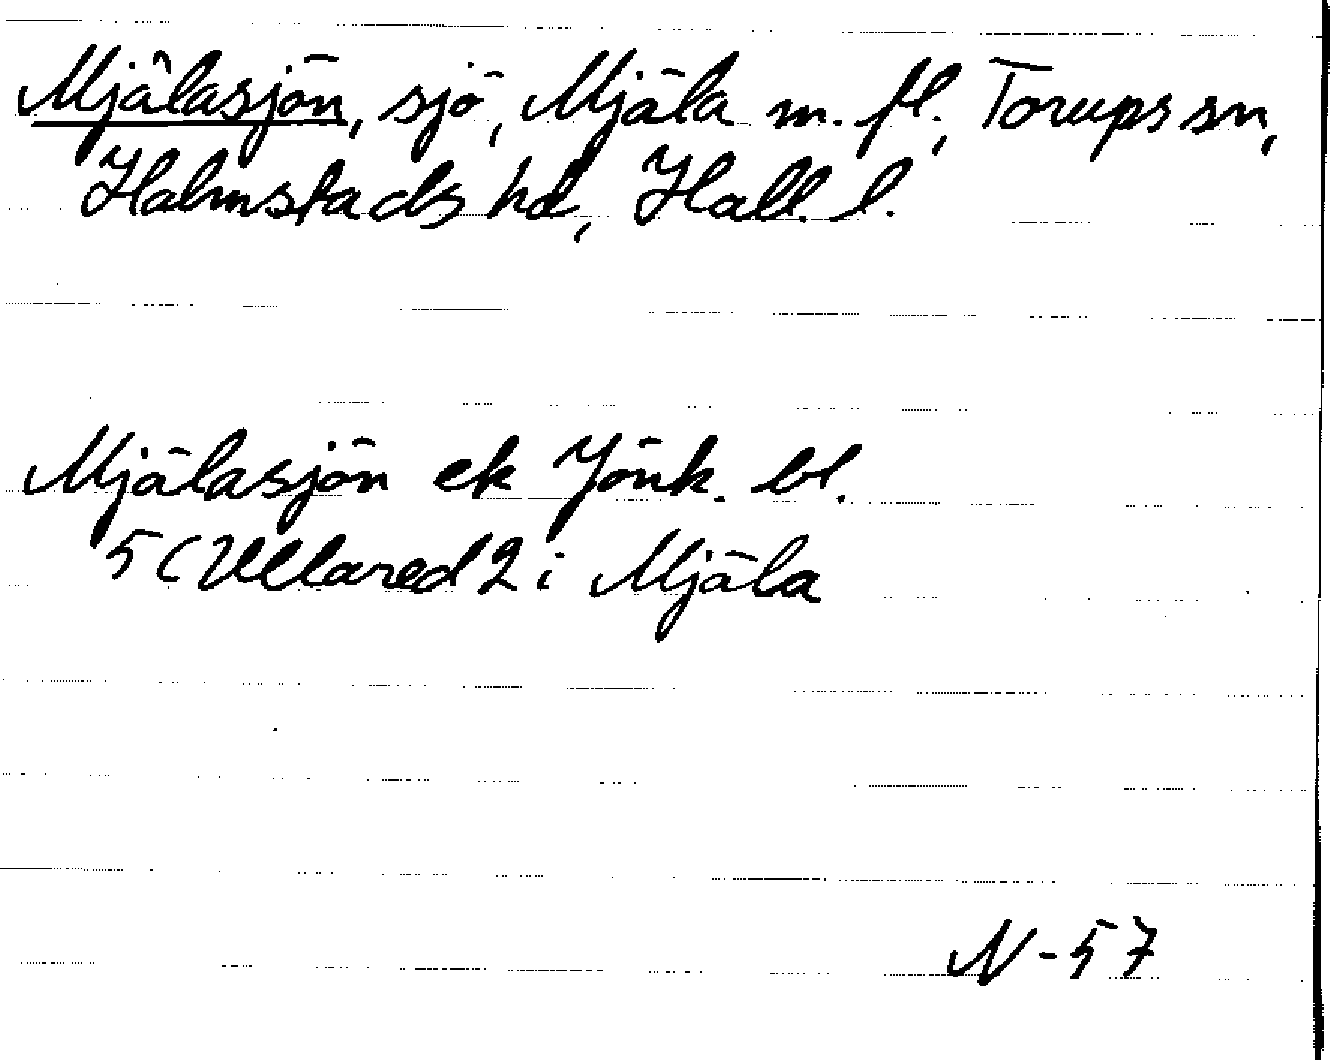 Mjälasjön, sjö, Mjäla m. fl., Torups sn,
Halmstads hd, Hall. l.
Mjälasjön ek Jönk. bl.
5 (Ullared 2 i Mjäla
N-57